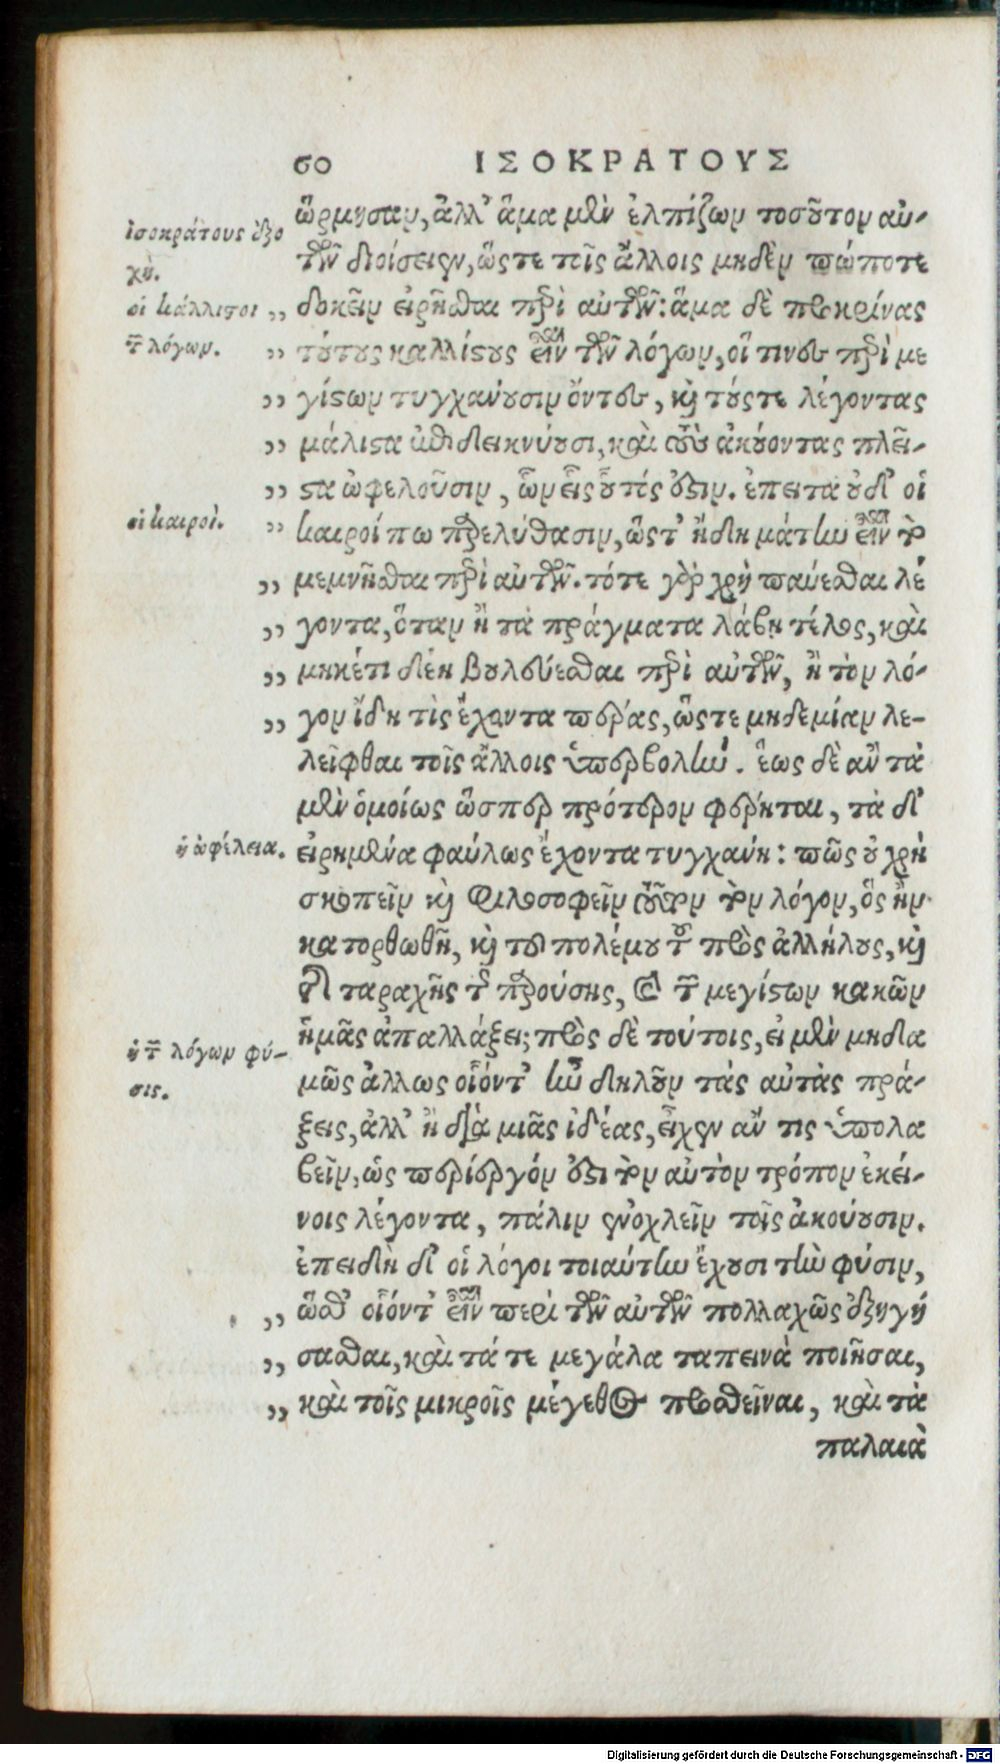 60 ΙΣΟΚΡΑΤΟΥΣ
ὥρμησαν, ἀλλ' ἅμα μὲν ἐλπίζων τοσοῦτον αὐ-
ἰσοκράτους ἐξο
τῶν διοίσειν, ὥστε τοῖς ἄλλοις μηδὲν πώποτε
χή.
δοκεῖν εἰρῆσθαι περὶ αὐτῶν: ἅμα δὲ προκρίνας
οἱ κάλλιστοι ,,
τούτους καλλίστους εἶναι τῶν λόγων, οἵ τινες περὶ με
τῶν λόγων. ,,
,, γίστων τυγχάνουσιν ὄντες, καὶ τούς τε λέγοντας
,, μάλιστα ἐπιδεικνύουσι, καὶ τοὺς ἀκούοντας πλεῖ-
,, στα ὠφελοῦσιν, ὧν εἷς οὗτός ἐστιν. ἔπειτα οὐδ' οἱ
οἱ καιροί. ,, καιροί πω παρεληλύθασιν, ὥστ' ἤδη μάτην εἶναι τὸ
,, μεμνῆσθαι περὶ αὐτῶν. τότε γὰρ χρὴ παύεσθαι λέ
,, γοντα, ὅταν ἢ τὰ πράγματα λάβῃ τέλος, καὶ
,, μηκέτι δέῃ βουλεύεσθαι περὶ αὐτῶν, ἢ τὸν λό-
,, γον ἴδῃ τις ἔχοντα πέρας, ὥστε μηδεμίαν λε-
λεῖφθαι τοῖς ἄλλοις ὑπερβολήν. ἕως δὲ ἂν τὰ
μὲν ὁμοίως ὥσπερ πρότερον φέρηται, τὰ δ'
ἡ ὠφέλεια. εἰρημένα φαύλως ἔχοντα τυγχάνῃ: πῶς οὐ χρὴ
σκοπεῖν καὶ φιλοσοφεῖν τοῦτον τὸν λόγον, ὃς ἢν
κατορθωθῇ, καὶ τοῦ πολέμου τοῦ πρὸς ἀλλήλους, καὶ
τῆς ταραχῆς τῆς παρούσης, καὶ τῶν μεγίστων κακῶν
ἡμᾶς ἀπαλλάξει; πρὸς δὲ τούτοις, εἰ μὲν μηδα
ἡ τῶν λόγων φύ-
μῶς ἄλλως οἷόντ' ἦν δηλοῦν τὰς αὐτὰς πρά-
σις.
ξεις, ἀλλ' ἢ διὰ μιᾶς ἰδέας, εἶχεν ἄν τις ὑπολα
βεῖν, ὡς περίεργόν ἐστι τὸν αὐτὸν τρόπον ἐκεί-
νοις λέγοντα, πάλιν ἐνοχλεῖν τοῖς ἀκούουσιν.
ἐπειδὴ δ' οἱ λόγοι τοιαύτην ἔχουσι τὴν φύσιν,
,, ὥσθ' οἷόντ' εἶναι περὶ τῶν αὐτῶν πολλαχῶς ἐξηγή
,, σασθαι, καὶ τά τε μεγάλα ταπεινὰ ποιῆσαι,
,, καὶ τοῖς μικροῖς μέγεθος προσθεῖναι, καὶ τὰ
παλαιὰ
Digitalisierung gefördert durch die Deutsche Forschungsgemeinschaft - DFG